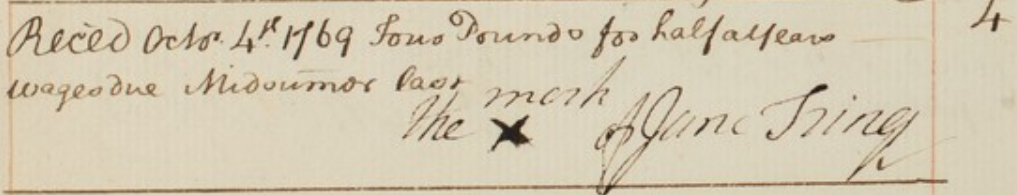 Reced Octor. 4th. 1769 Four Pounds for half a years 4
wages due Midsumer last
the X mark of Jane Tring